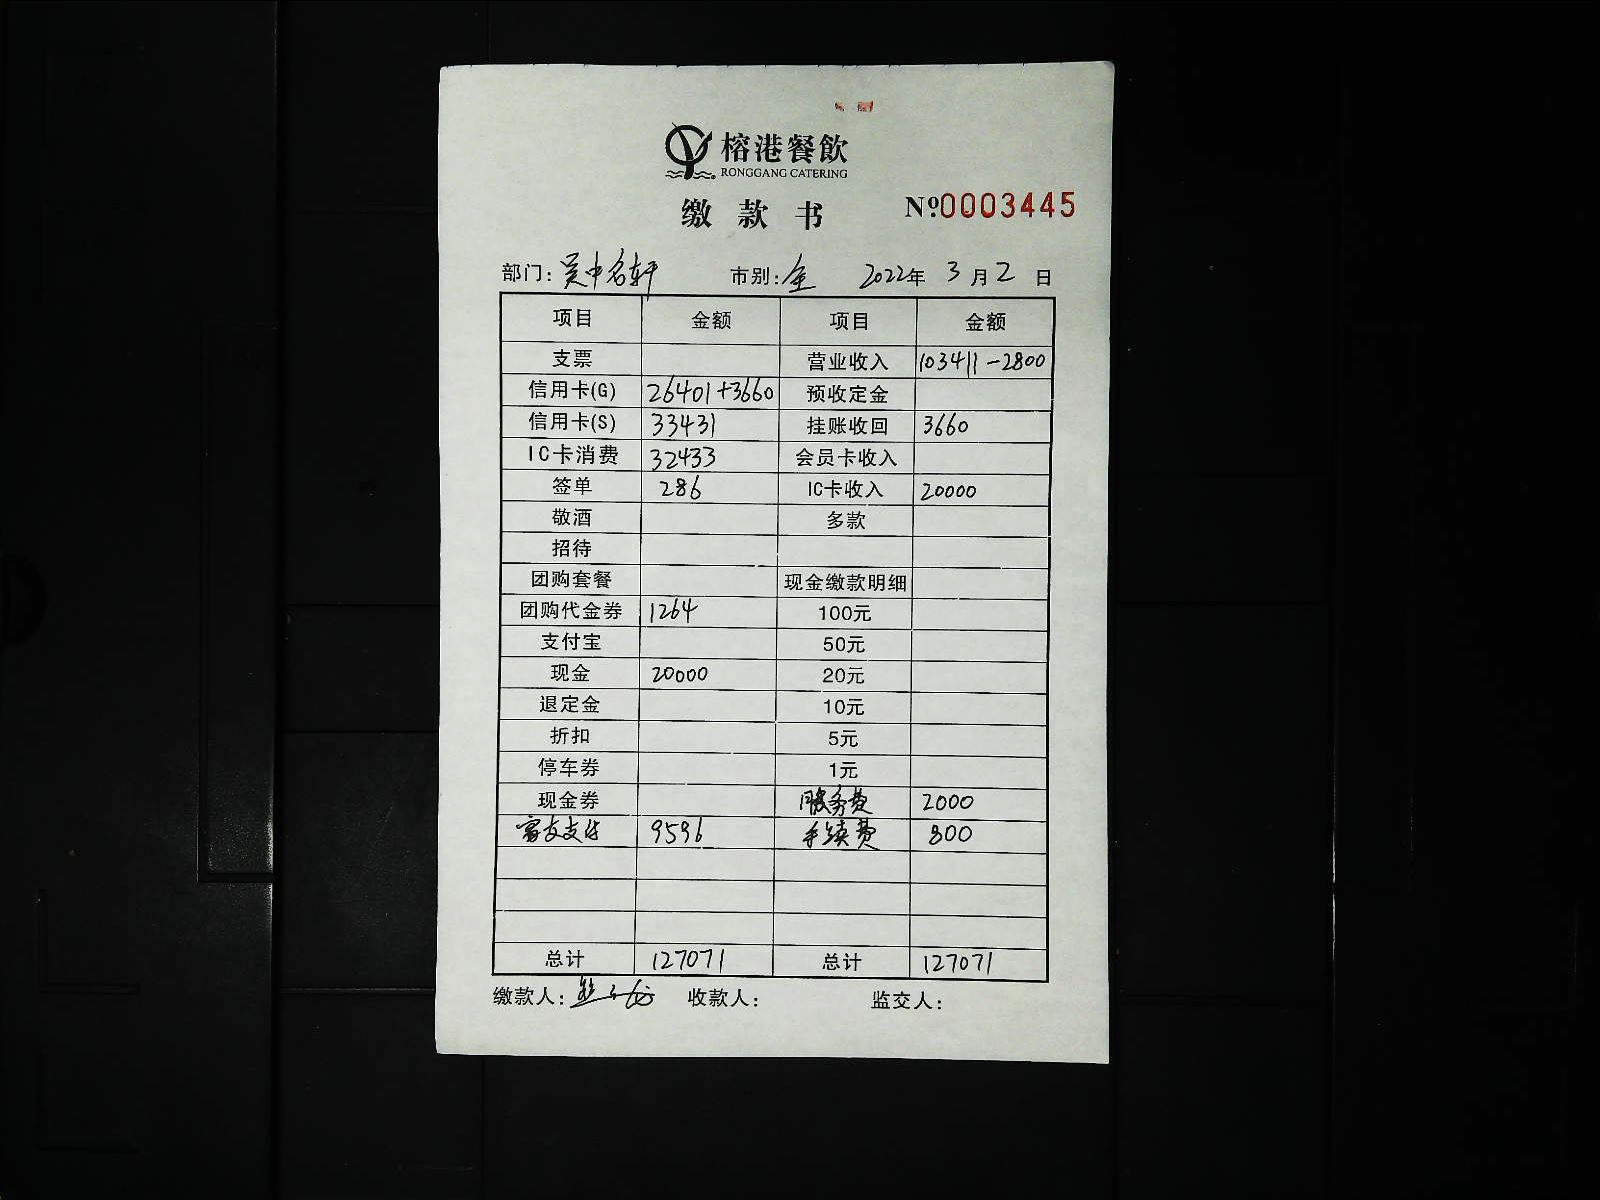 榕港餐飲
RONGGANG CATERING
缴款书
№0003445
部门: 吴中名轩 市别: 全 2022年 3月2日
项目 金额 项目 金额
支票 营业收入 103411-2800
信用卡(G) 26401+3660 预收定金
信用卡(S) 33431 挂账收回 3660
IC卡消费 32433 会员卡收入
签单 286 IC卡收入 20000
敬酒 多款
招待
团购套餐 现金缴款明细
团购代金券 1264 100元
支付宝 50元
现金 20000 20元
退定金 10元
折扣 5元
停车券 1元
现金券 服务费 2000
富友支付 9596 手续费 800
总计 127071 总计 127071
缴款人: 收款人: 监交人: